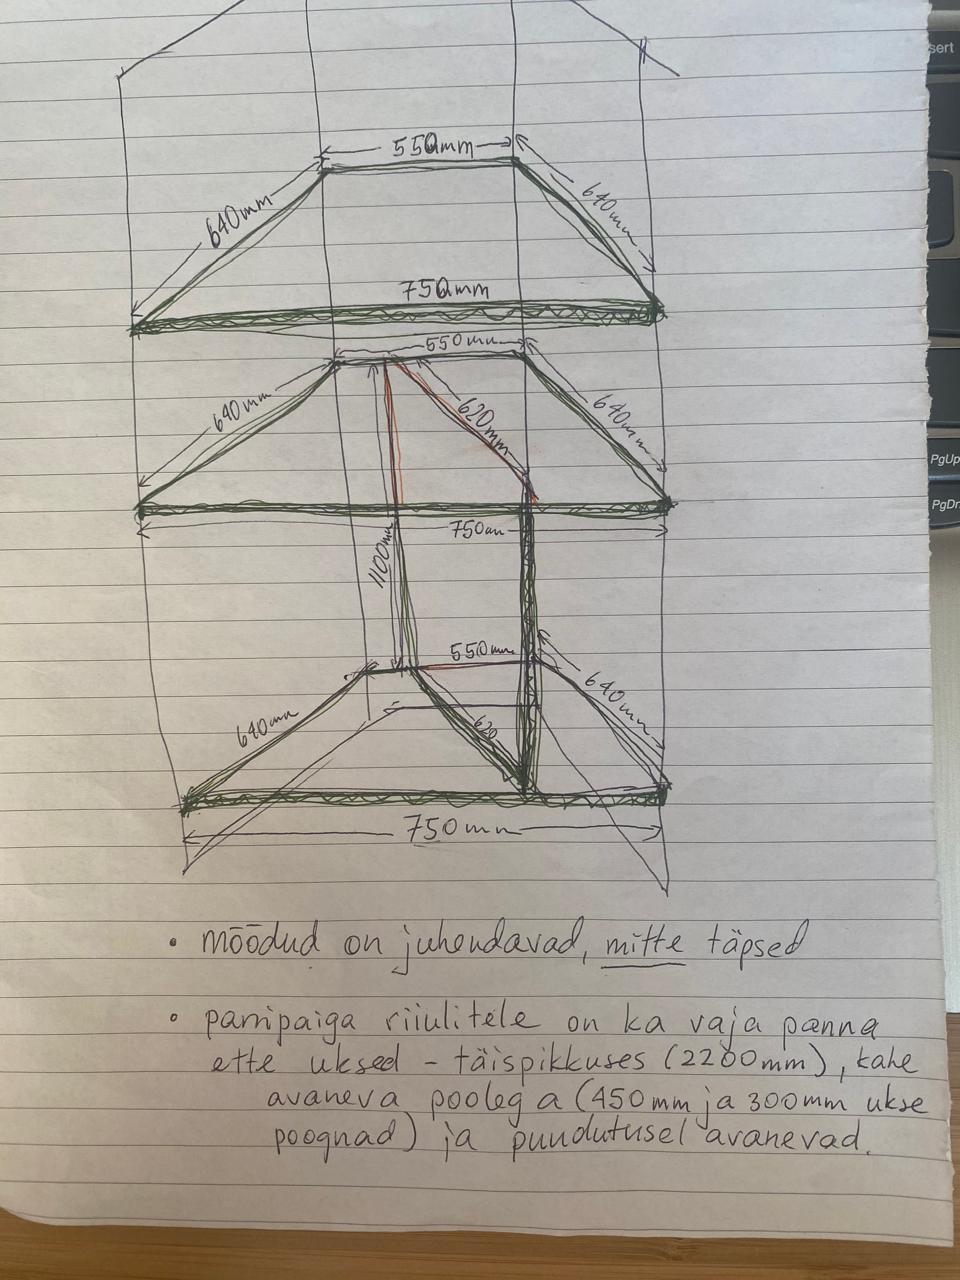 550mm
640mm
640mm
750mm
550mm
640mm
620mm
640mm
750mm
1100mm
550mm
640mm
640mm
620
750mm
• mõõdud on juhendavad, mitte täpsed
• parripaiga riiulitele on ka vaja panna
ette uksed - täispikkuses (2200mm), kahe
avaneva poolega (450mm ja 300mm ukse
poognad) ja puudutusel avanevad.
sert
PgUp
PgDn